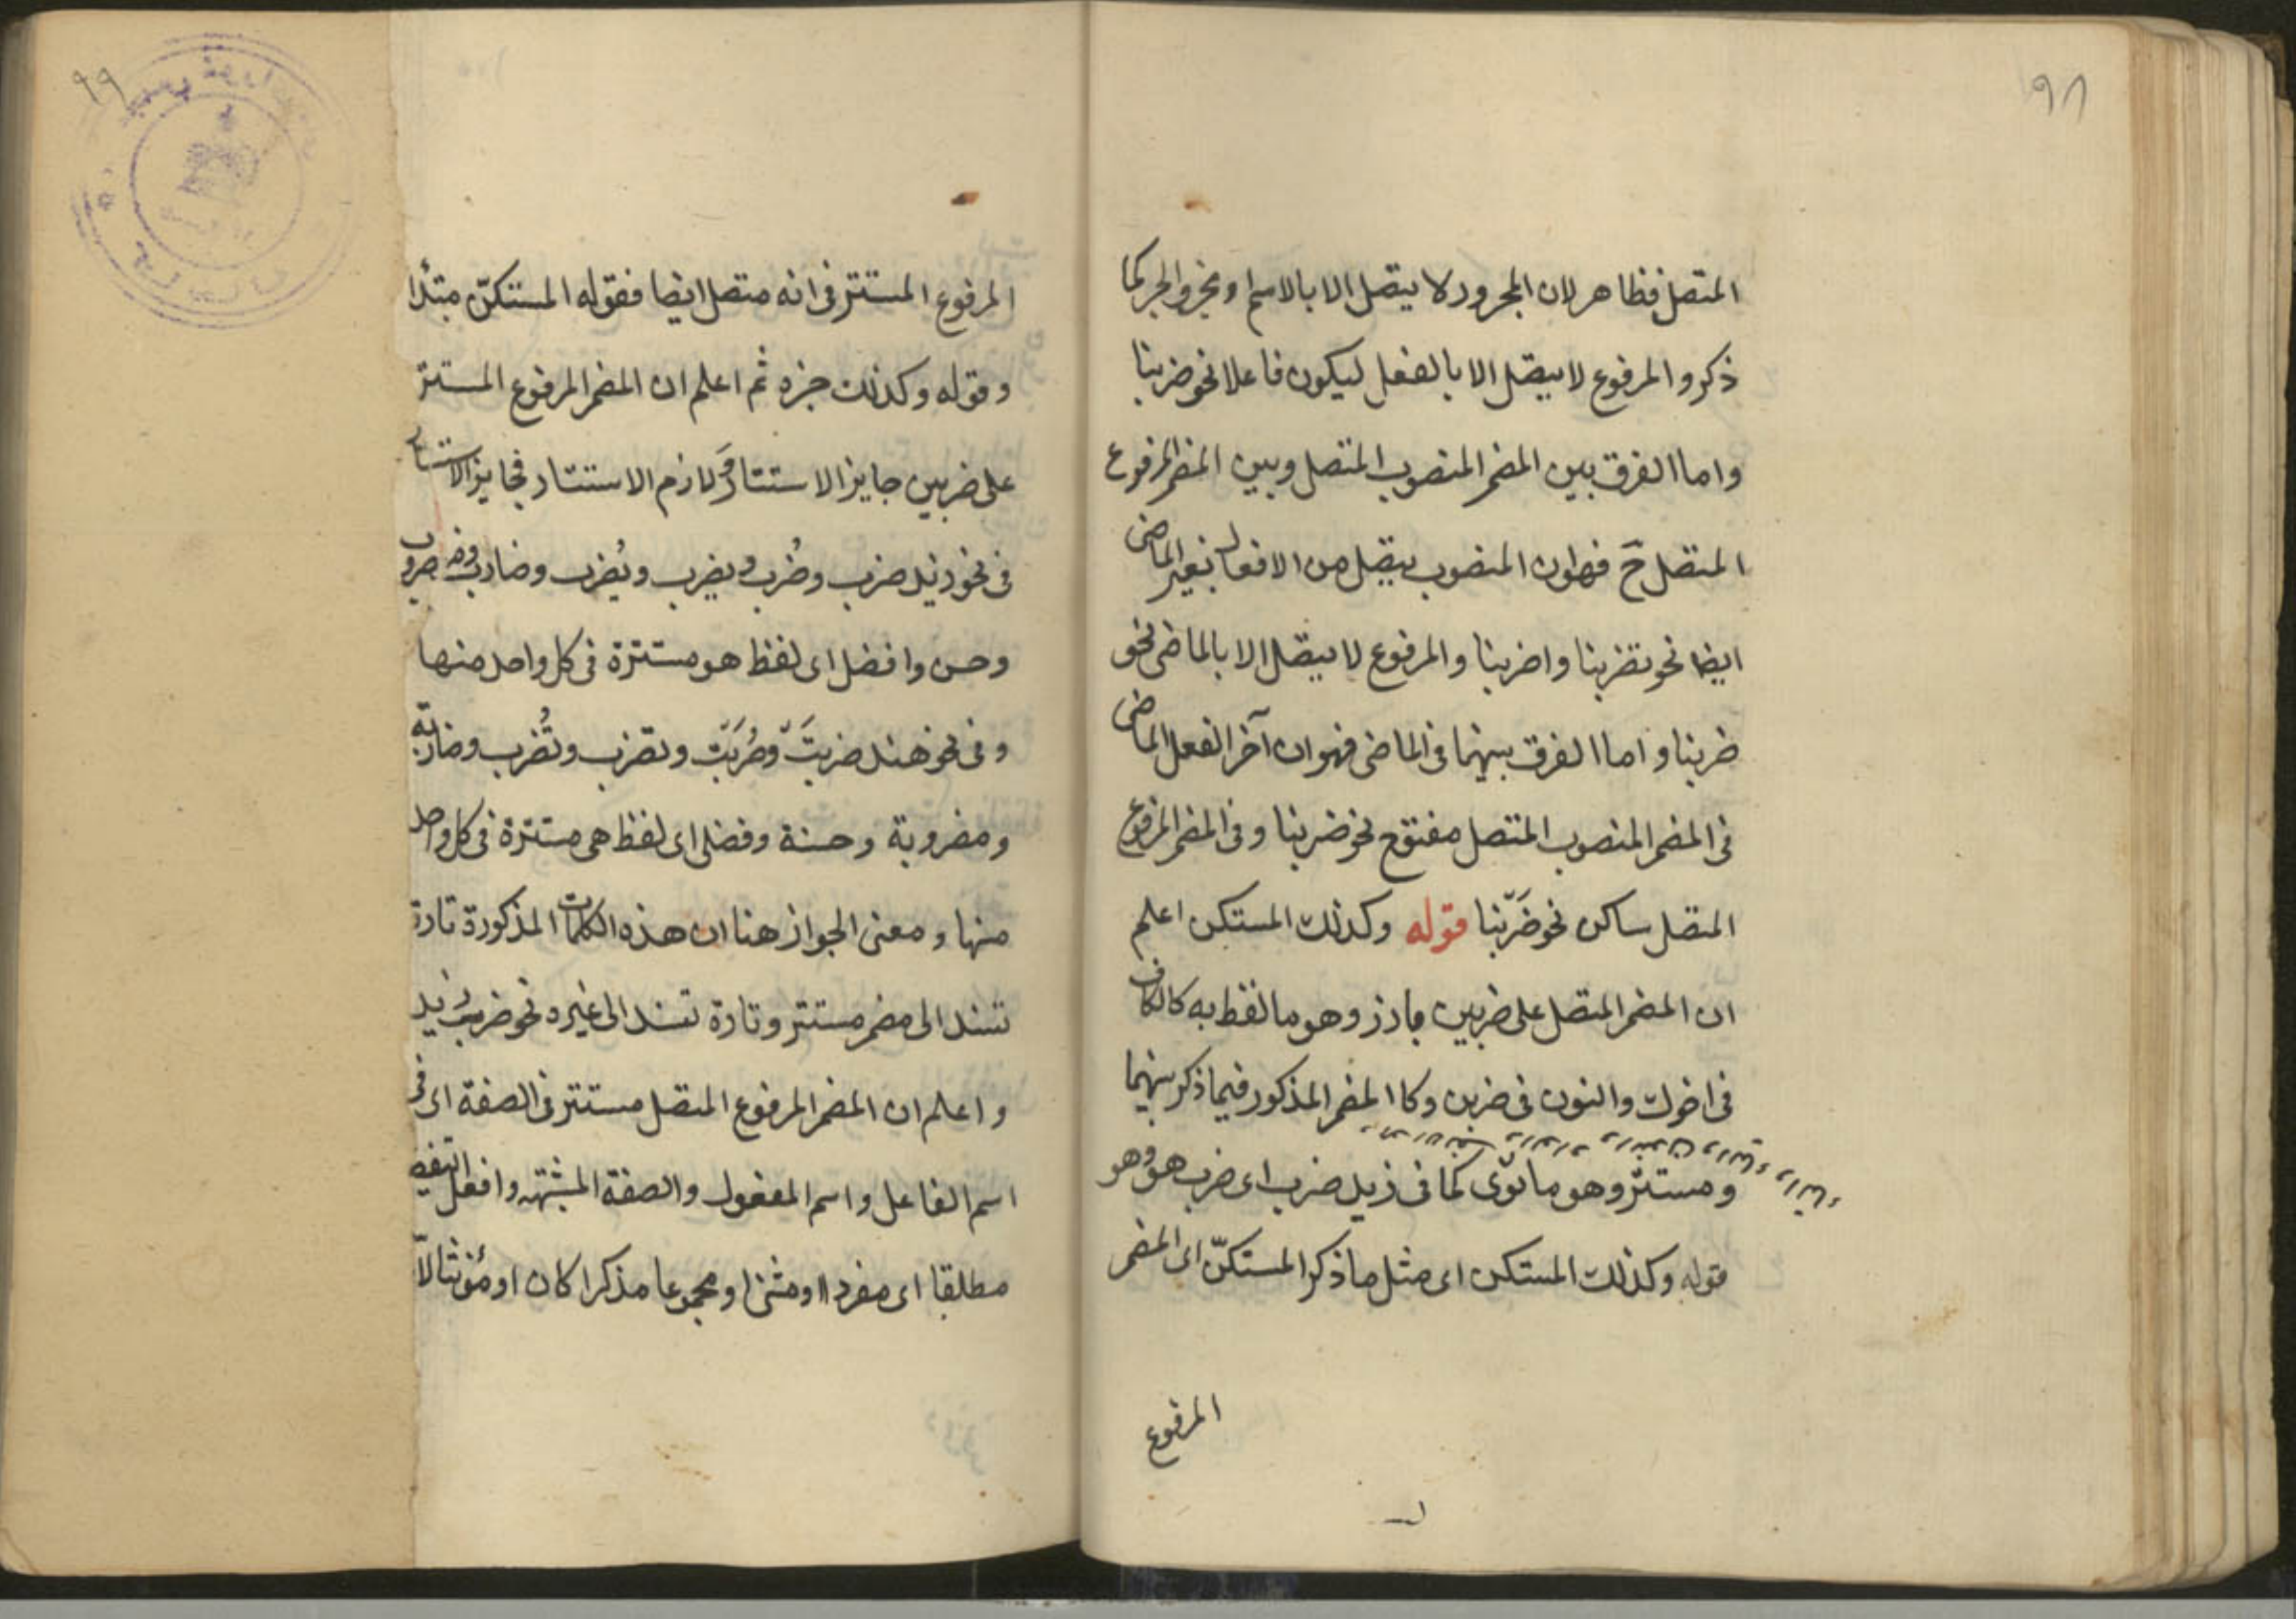 ٩٨
المتصل فظاهر لان المجرور لا يتصل الا بالاسم او بحرف الجر كما
ذكر والمرفوع لا يتصل الا بالفعل ليكون فاعلا نحو ضربنا
واما الفرق بين المضمر المنصوب المتصل وبين المضمر المرفوع
المتصل ح فهو ان المنصوب يتصل من الافعال بغير الماضى
ايضا نحو تضربنا واضربنا والمرفوع لا يتصل الا بالماضى نحو
ضربنا واما الفرق بينهما فى الماضى فهو ان آخر الفعل الماضى
فى المضمر المنصوب المتصل مفتوح نحو ضربنا وفى المضمر المرفوع
المتصل ساكن نحو ضَرَبْنا قوله وكذلك المستكن اعلم
ان المضمر المتصل على ضربين بارز وهو ما لفظ به كالكاف
فى اخوك والنون فى ضربن وكالمضمر المذكور فيما ذكر بينهما
ومستتر وهو ما نوى كما فى زيد ضرب اى ضرب هو وهو
قوله وكذلك المستكن اى مثل ما ذكر المستكنّ اى المضمر
المرفوع
٩٩
المرفوع المستتر فى انه متصل ايضا فقوله المستكنّ مبتدأ
وقوله وكذلك خبره ثم اعلم ان المضمر المرفوع المستتر
على ضربين جايز الاستتار ولازم الاستتار فجايز الاستتار
فى نحو زيد ضرب وضُرب ويضرب ويُضرب وضارب ومضروب
وحسن وافضل اى لفظ هو مستترة فى كل واحد منها
وفى نحو هند ضربتْ وضُرِبَتْ وتضرب وتُضرب وضاربة
ومضروبة وحسنة وفضلى اى لفظ هى مستترة فى كل واحد
منها ومعنى الجواز هنا ان هذه الكلمات المذكورة تارة
تسند الى مضمر مستتر وتارة تسند الى غيره نحو ضرب زيد
واعلم ان المضمر المرفوع المتصل مستتر فى الصفة اى فى
اسم الفاعل واسم المفعول والصفة المشبهة وافعل التفضيل
مطلقا اى مفردا او مثنى او مجموعا مذكرا كان او مؤنثا الا